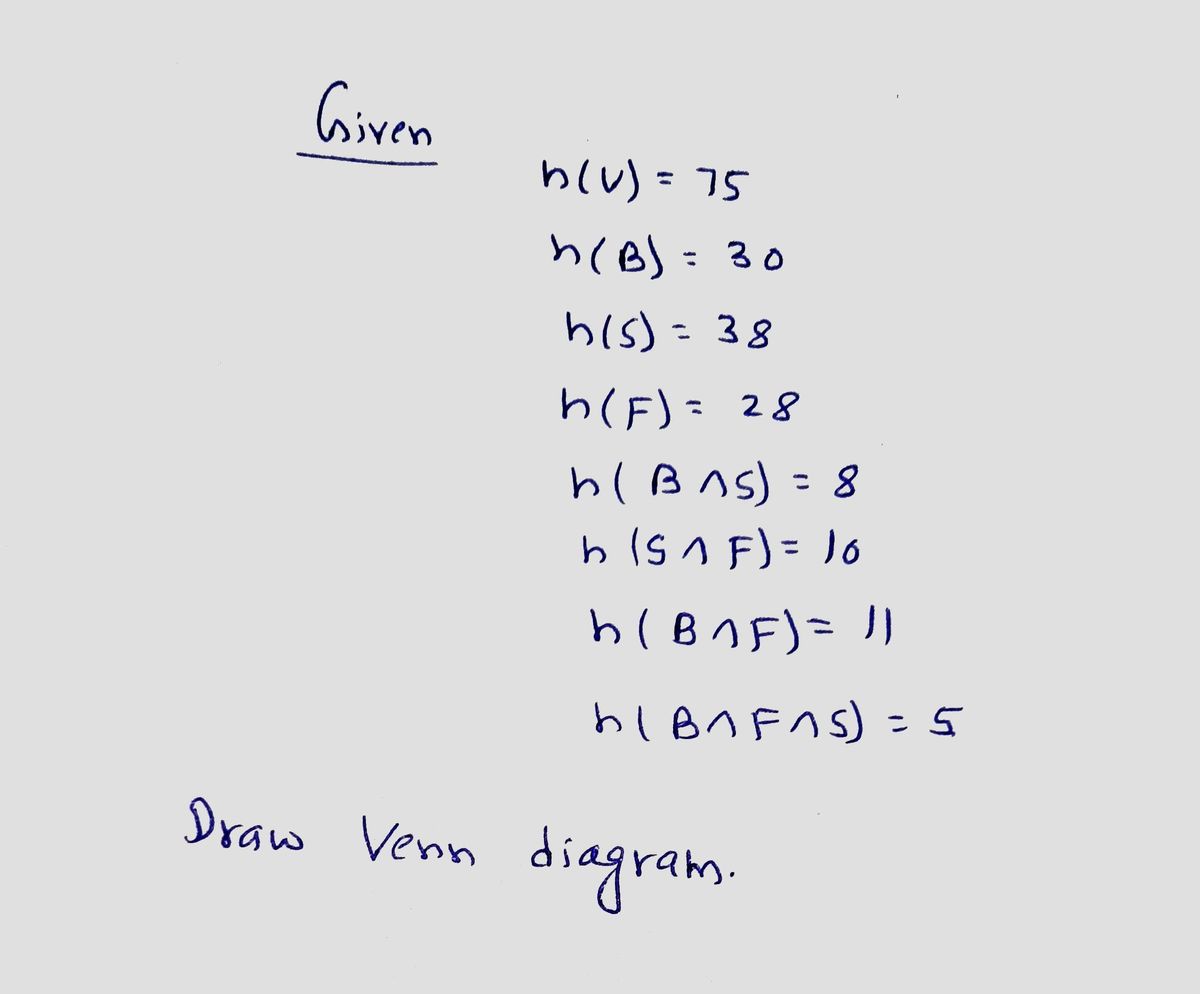 Given
n(U) = 75
n(B) = 30
n(S) = 38
n(F) = 28
n(B ∩ S) = 8
n(S ∩ F) = 10
n(B ∩ F) = 11
n(B ∩ F ∩ S) = 5
Draw Venn diagram.